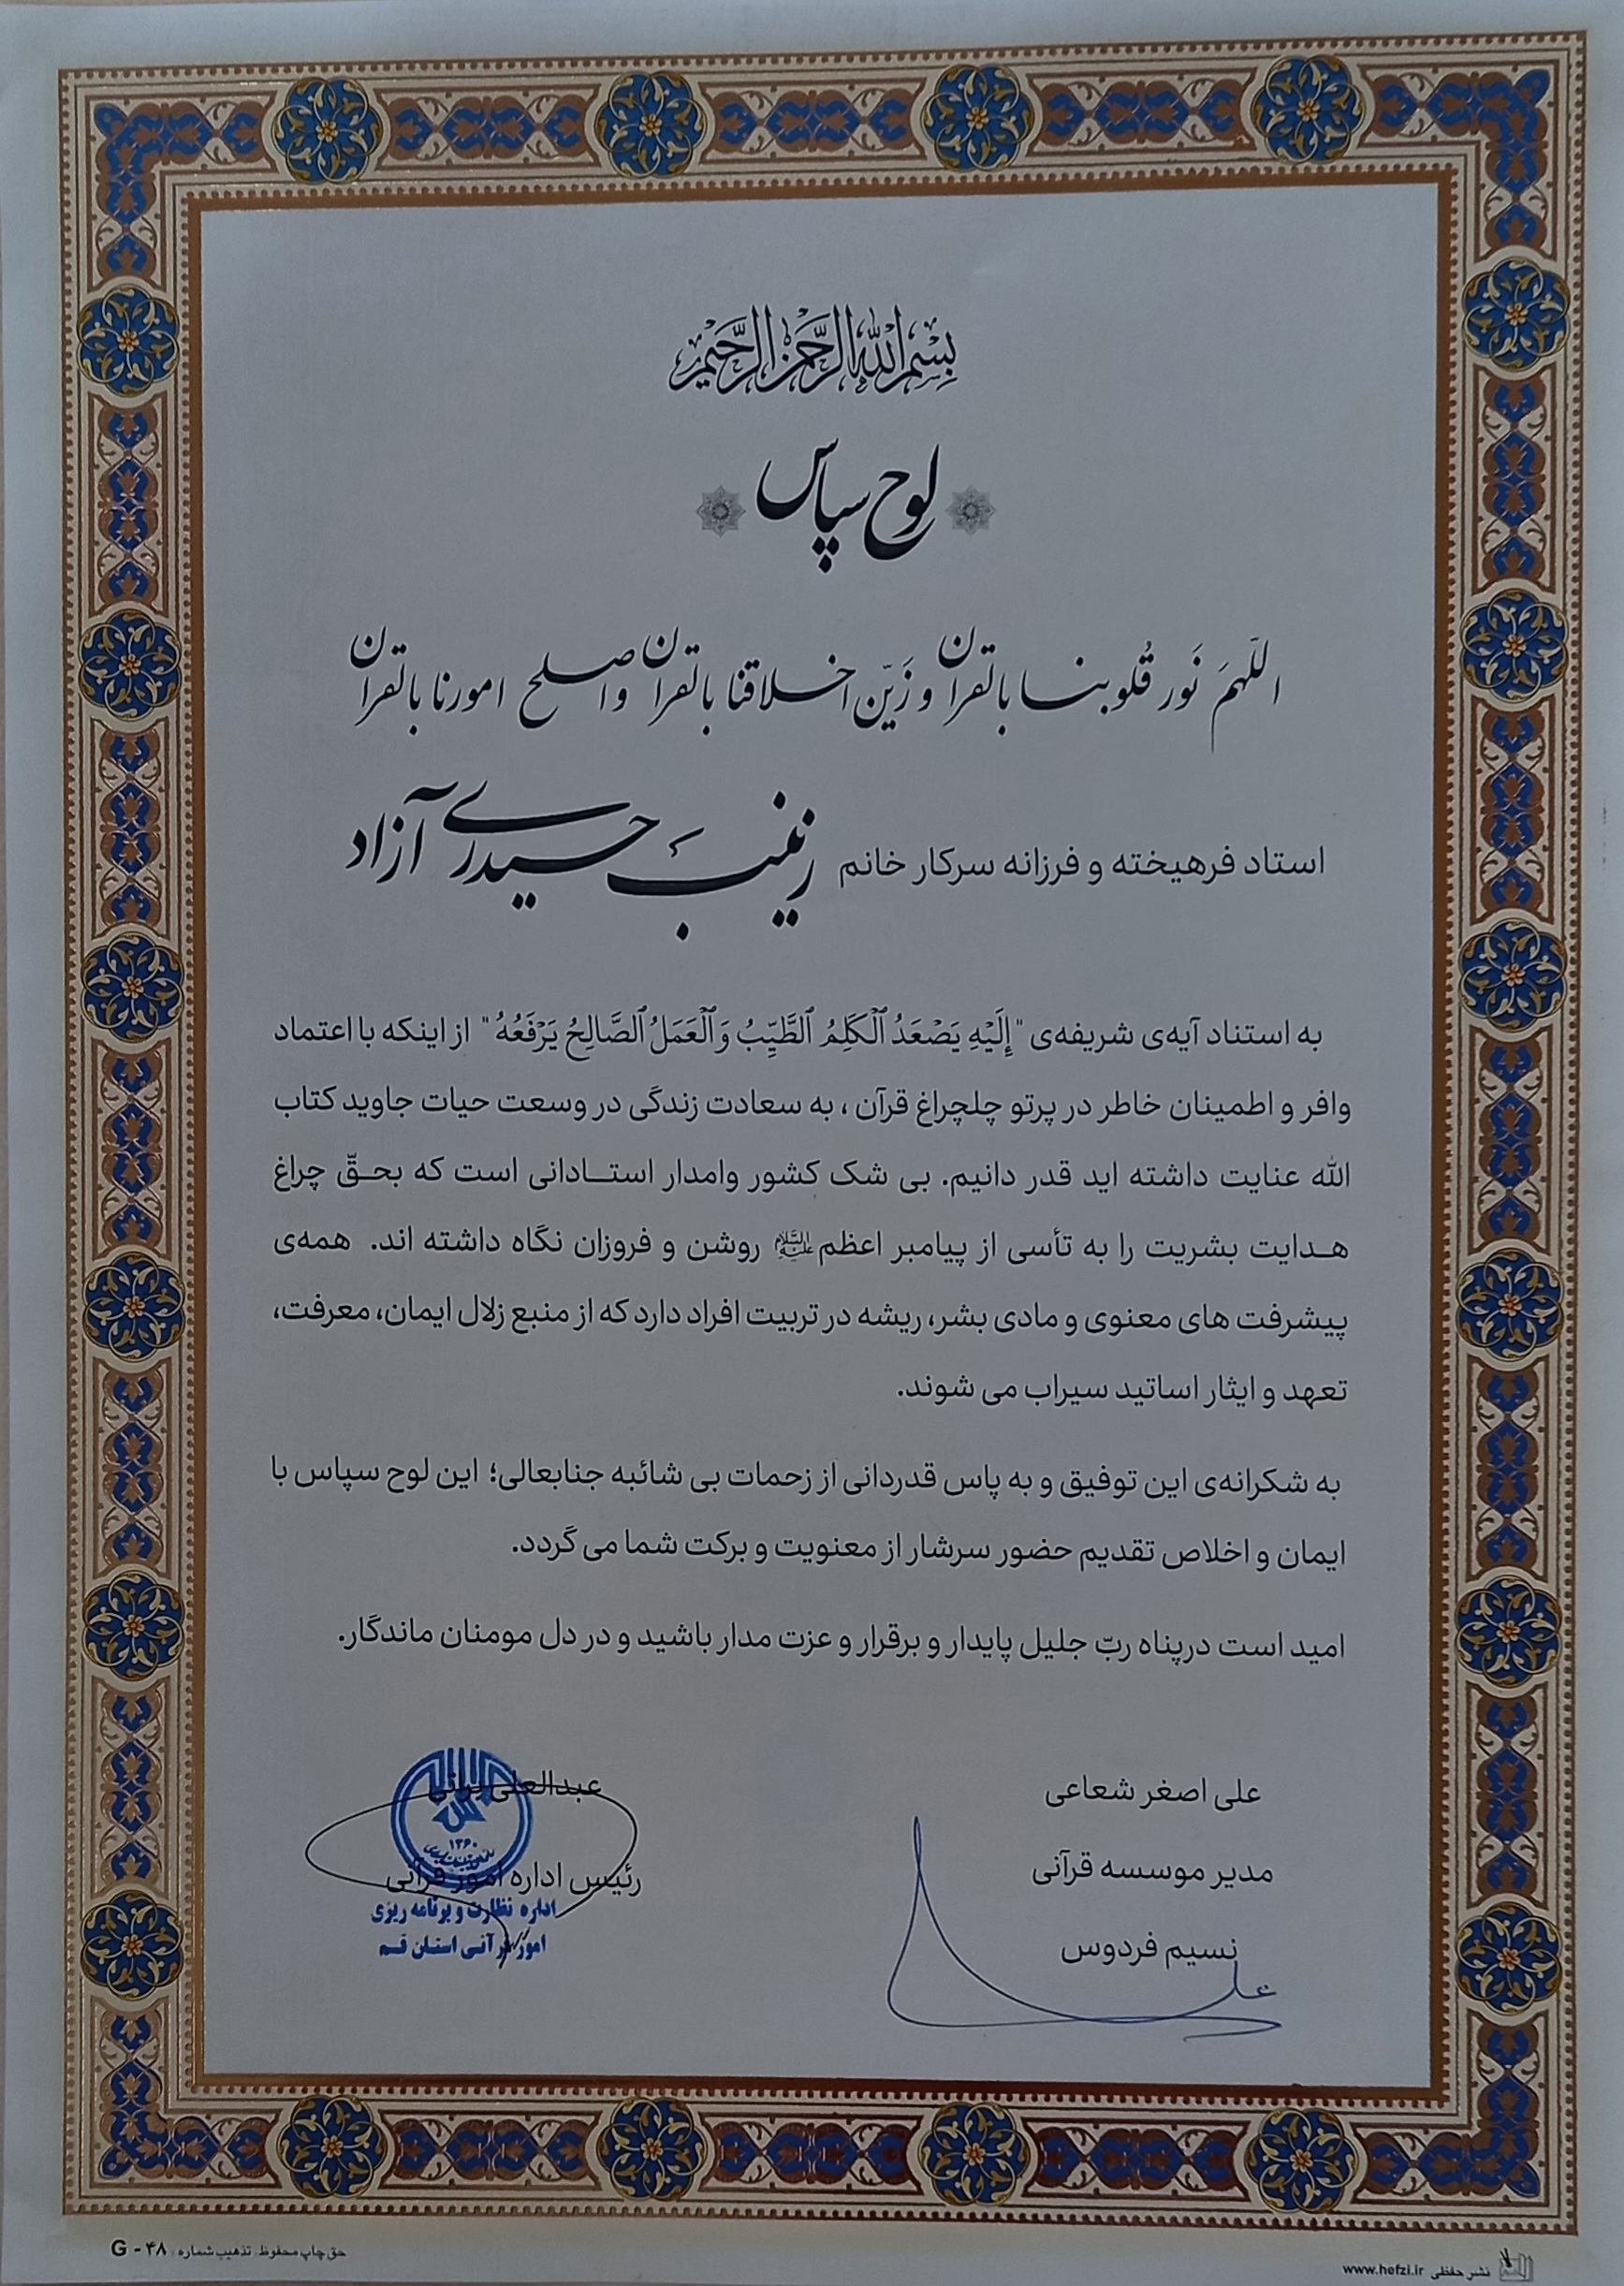 بِسْمِ اللهِ الرَّحْمنِ الرَّحیمِ
لوح سپاس
اللّهمَ نَور قُلوبنا بالقرآن و زَیّن اخلاقنا بالقرآن واصلح امورنا بالقرآن
استاد فرهیخته و فرزانه سرکار خانم زینب حیدری آزاد
به استناد آیه‌ی شریفه‌ی "إِلَيْهِ يَصْعَدُ ٱلْكَلِمُ ٱلطَّيِّبُ وَٱلْعَمَلُ ٱلصَّالِحُ يَرْفَعُهُ" از اینکه با اعتماد
وافر و اطمینان خاطر در پرتو چلچراغ قرآن ، به سعادت زندگی در وسعت حیات جاوید کتاب
الله عنایت داشته اید قدر دانیم. بی شک کشور وامدار استادانی است که بحقّ چراغ
هدایت بشریت را به تأسی از پیامبر اعظم علیه‌السلام روشن و فروزان نگاه داشته اند. همه‌ی
پیشرفت های معنوی و مادی بشر، ریشه در تربیت افراد دارد که از منبع زلال ایمان، معرفت،
تعهد و ایثار اساتید سیراب می شوند.
به شکرانه‌ی این توفیق و به پاس قدردانی از زحمات بی شائبه جنابعالی؛ این لوح سپاس با
ایمان و اخلاص تقدیم حضور سرشار از معنویت و برکت شما می گردد.
امید است درپناه ربّ جلیل پایدار و برقرار و عزت مدار باشید و در دل مومنان ماندگار.
علی اصغر شعاعی
مدیر موسسه قرآنی
نسیم فردوس
علی
عبدالعلی
رئیس اداره امور قرآنی
۱۳۶۰
اداره نظارت و برنامه ریزی
امور قرآنی استان قم
حق چاپ محفوظ تذهیب شماره : G - ۴۸
نشر حفظی www.hefzi.ir